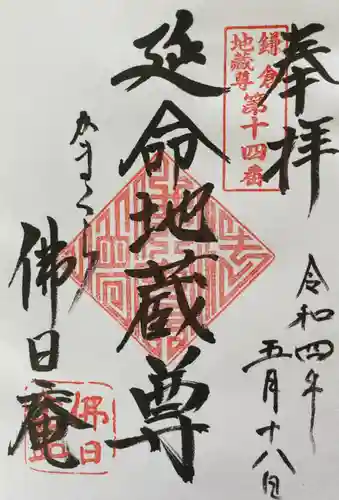 奉拝
鎌倉第十四番
地蔵尊
令和四年
五月十八日
延命地蔵尊
かまくら
佛日庵
佛日